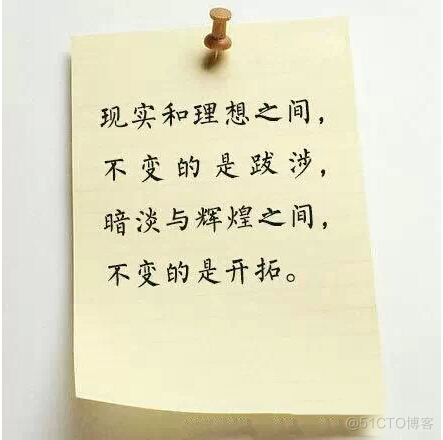 现实和理想之间，
不变的是跋涉，
暗淡与辉煌之间，
不变的是开拓。
@51CTO博客